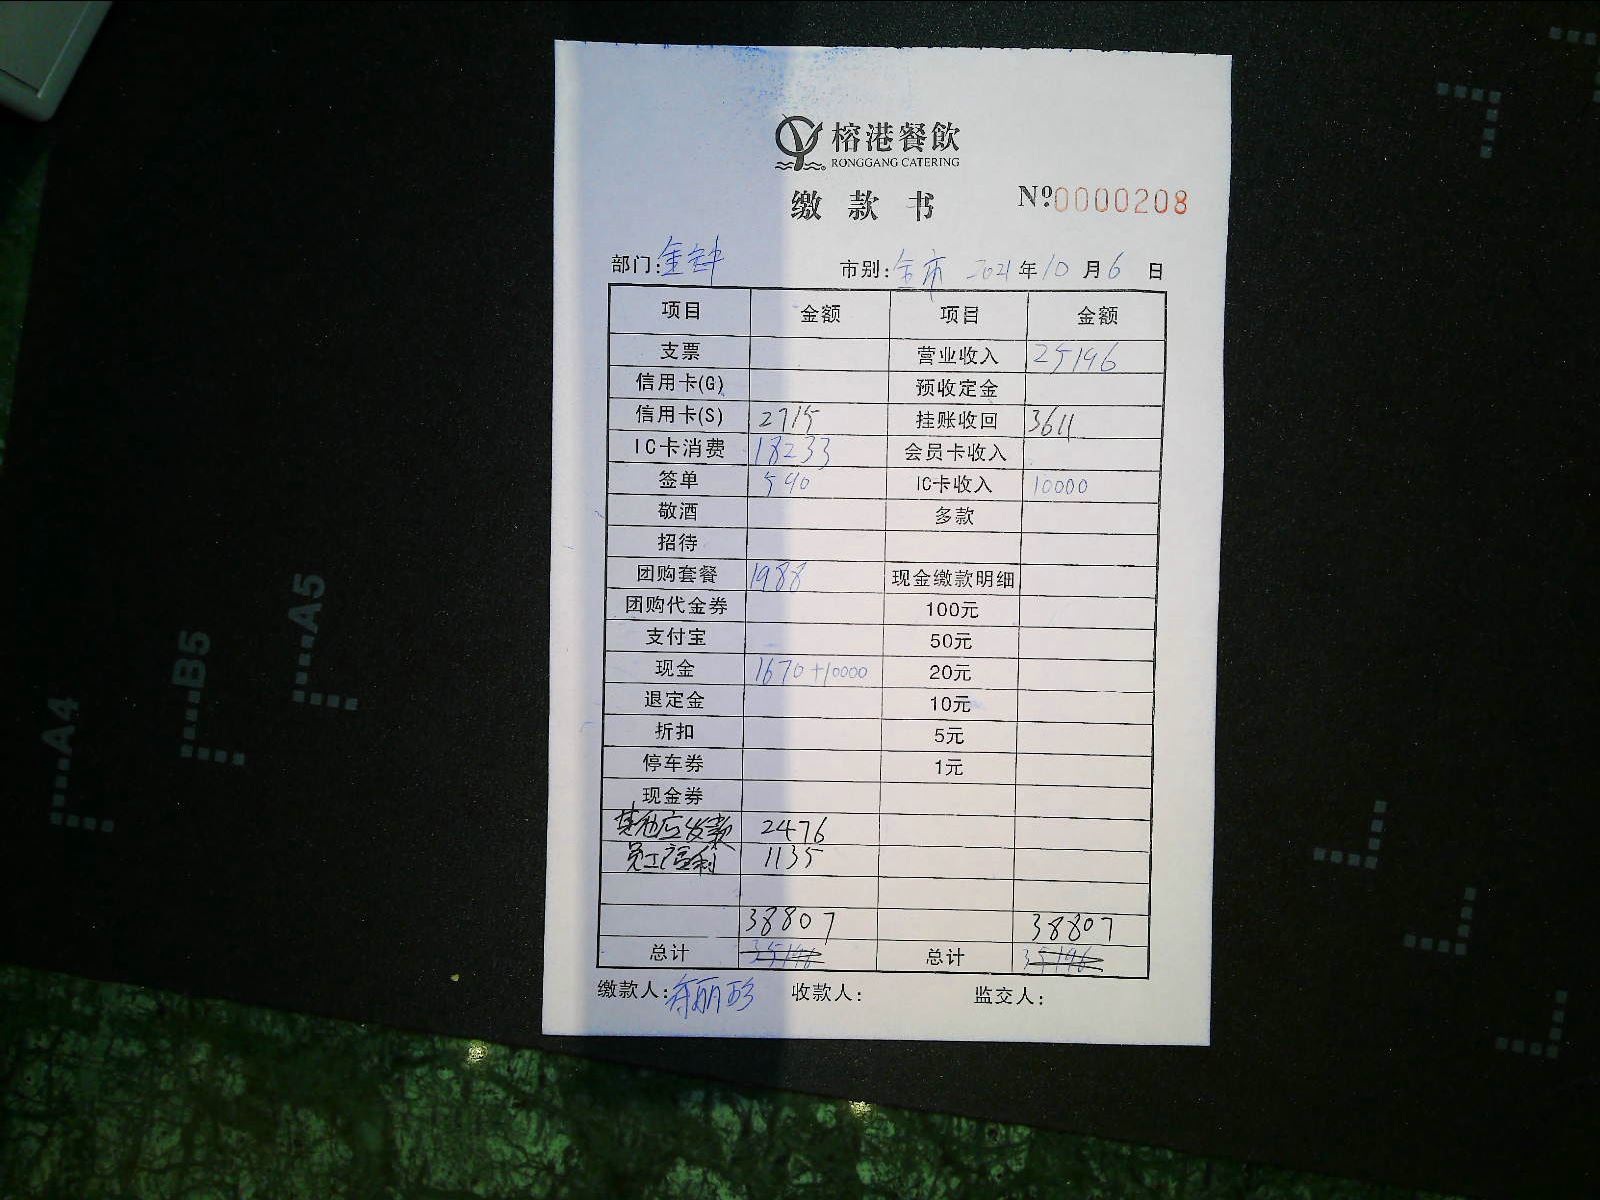 榕港餐飲
RONGGANG CATERING
缴款书 №0000208
部门: 市别:全市 2021年10月6日
项目 金额 项目 金额
支票 营业收入 25196
信用卡(G) 预收定金
信用卡(S) 2715 挂账收回 3611
IC卡消费 18233 会员卡收入
签单 590 IC卡收入 10000
敬酒 多款
招待
团购套餐 1988 现金缴款明细
团购代金券 100元
支付宝 50元
现金 1670+10000 20元
退定金 10元
折扣 5元
停车券 1元
现金券
其他应发款 2476
员工福利 1135
38807 38807
总计 35196 总计 35196
缴款人: 收款人: 监交人:
A4
B5
A5